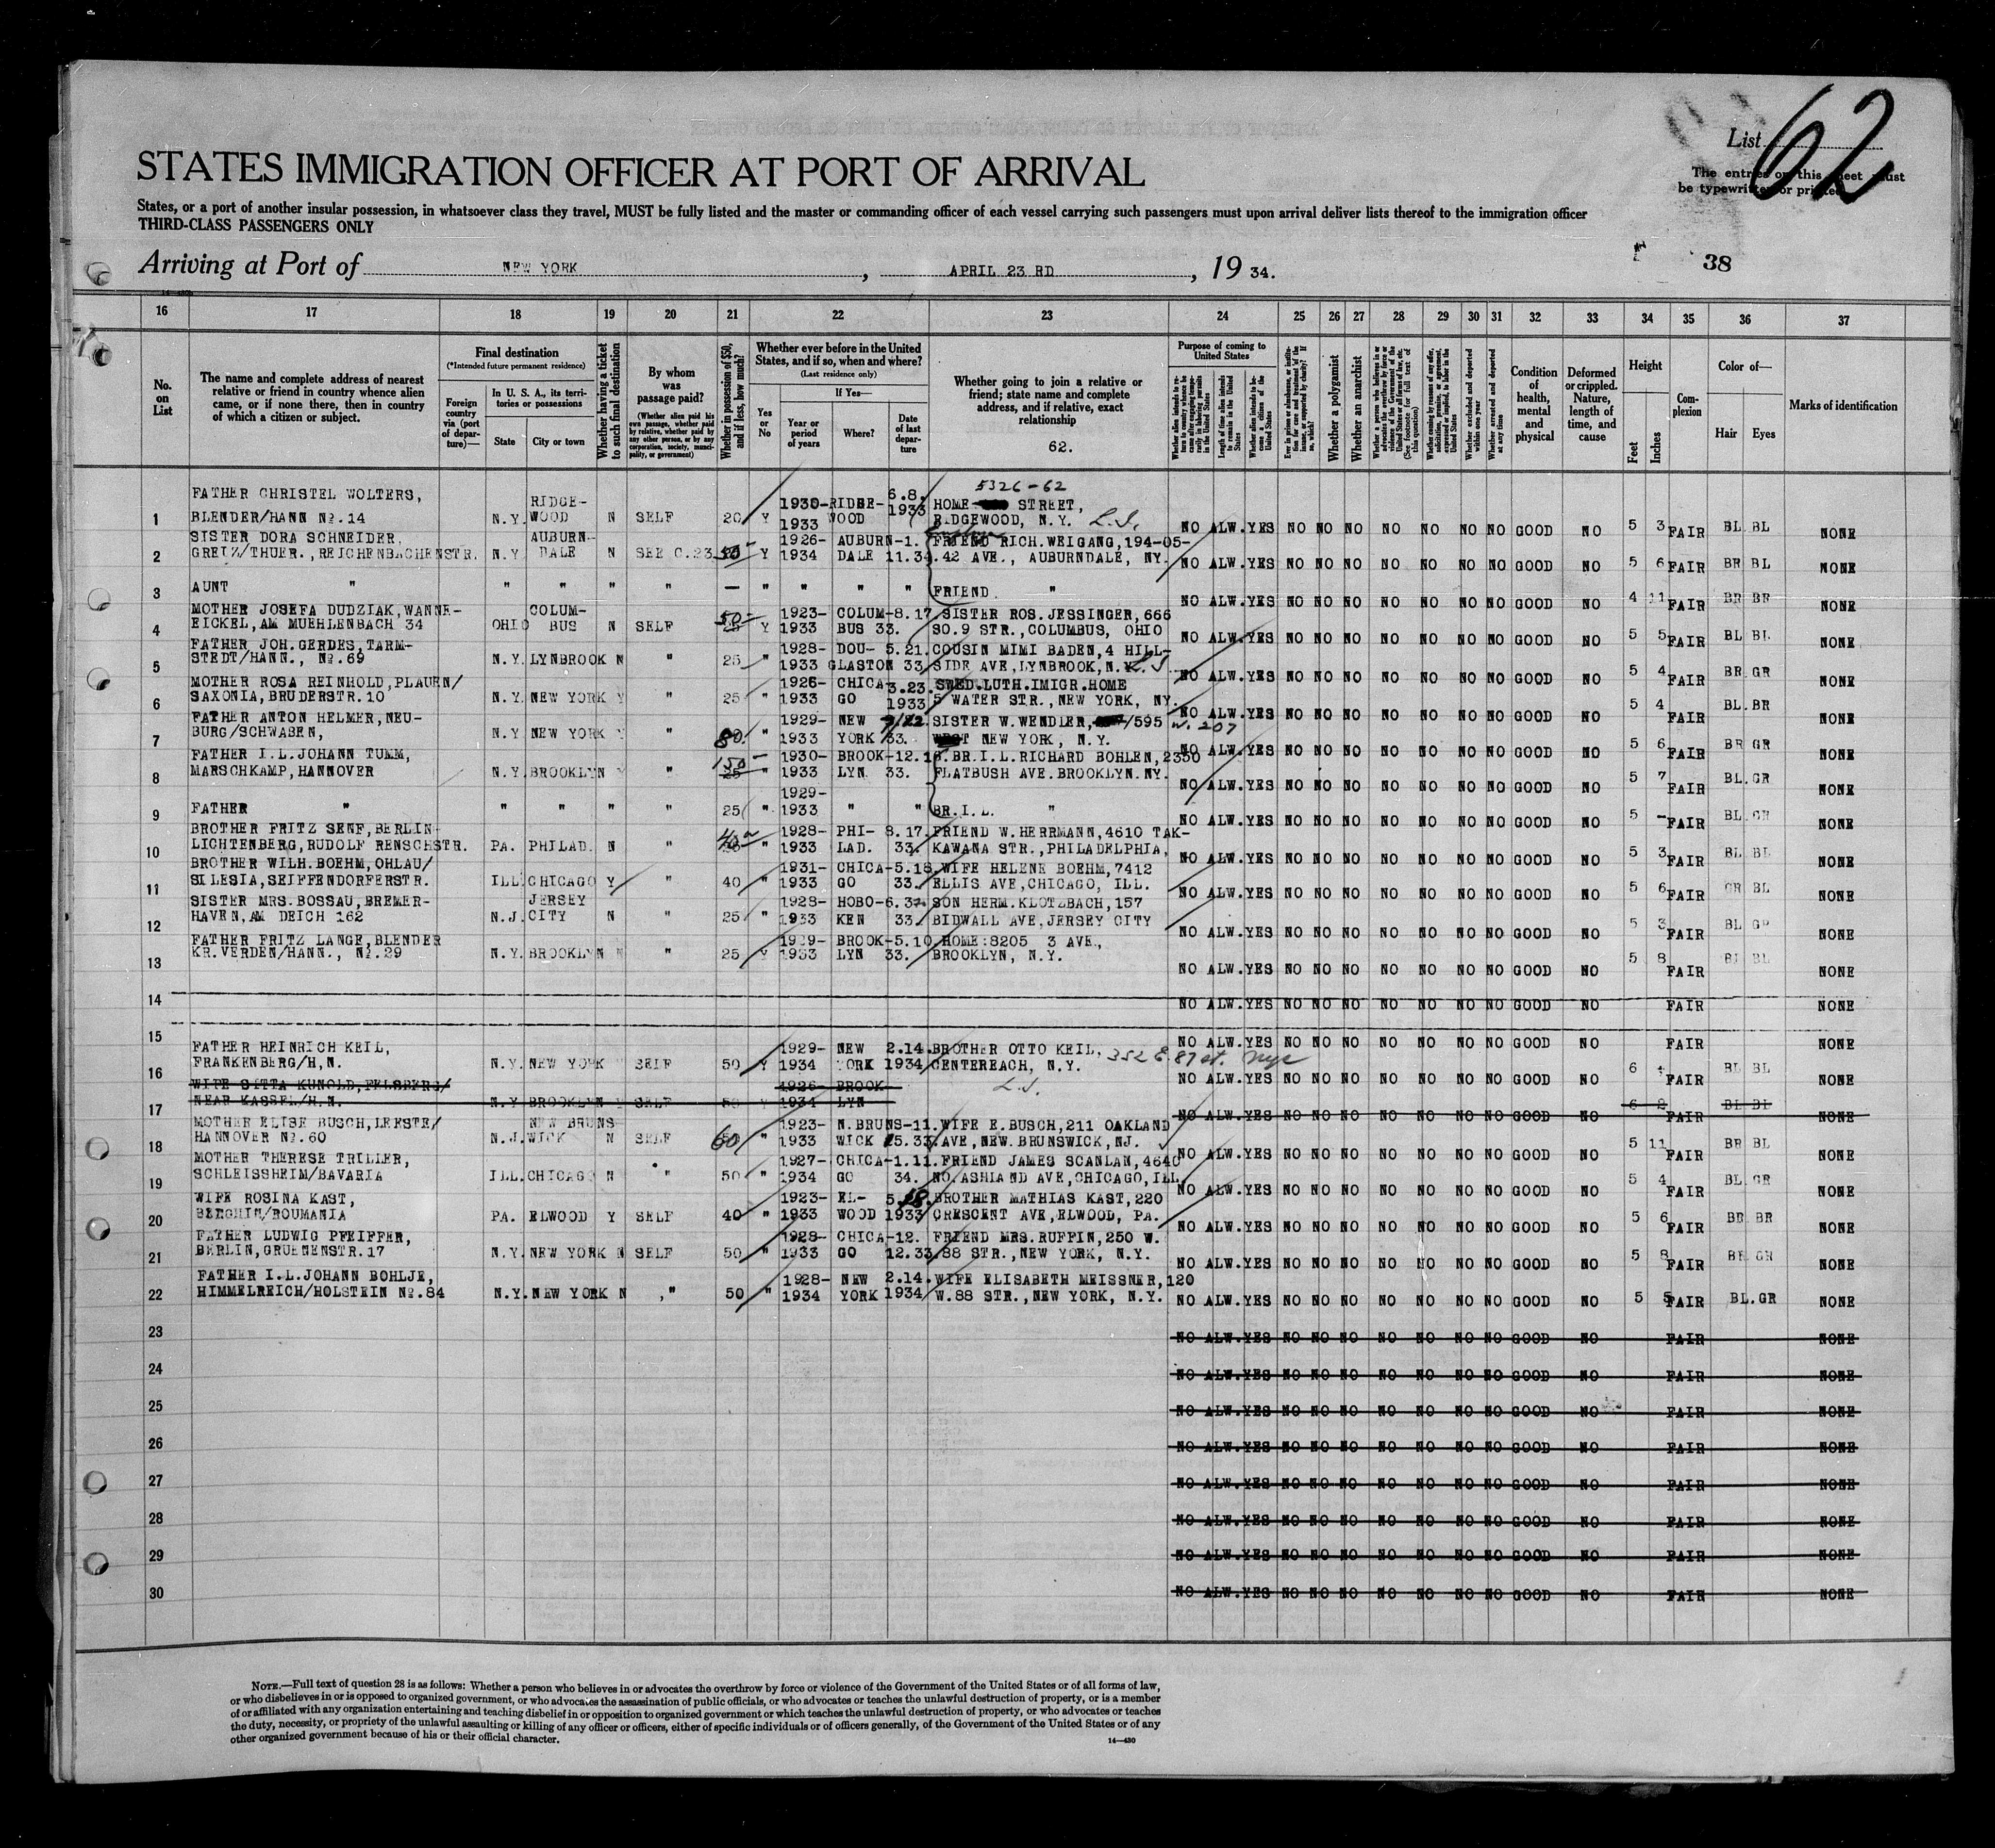 List 62
The entries on this sheet must
be typewritten or printed
STATES IMMIGRATION OFFICER AT PORT OF ARRIVAL
States, or a port of another insular possession, in whatsoever class they travel, MUST be fully listed and the master or commanding officer of each vessel carrying such passengers must upon arrival deliver lists thereof to the immigration officer
THIRD-CLASS PASSENGERS ONLY
Arriving at Port of NEW YORK, APRIL 23 RD, 19 34.
38
16 17 18 19 20 21 22 23 24 25 26 27 28 29 30 31 32 33 34 35 36 37
No. on List
The name and complete address of nearest relative or friend in country whence alien came, or if none there, then in country of which a citizen or subject.
Final destination
(*Intended future permanent residence)
Foreign country via (port of departure)—
In U. S. A., its territories or possessions
State
City or town
Whether having a ticket to such final destination
By whom was passage paid?
(Whether alien paid his own passage, whether paid by relative, whether paid by any other person, or by any corporation, society, municipality, or government)
Whether in possession of $50, and if less, how much?
Whether ever before in the United States, and if so, when and where?
(Last residence only)
Yes or No
If Yes—
Year or period of years
Where?
Date of last departure
Whether going to join a relative or friend; state name and complete address, and if relative, exact relationship
62.
Purpose of coming to United States
Whether alien intends to return to country whence he came after engaging temporarily in laboring pursuits in the United States
Length of time alien intends to remain in the United States
Whether alien intends to become a citizen of the United States
Whether a polygamist
Whether an anarchist
Whether excluded and deported within one year
Whether arrested and deported at any time
Condition of health, mental and physical
Deformed or crippled. Nature, length of time, and cause
Height
Feet
Inches
Complexion
Color of—
Hair
Eyes
Marks of identification
5326-62
FATHER CHRISTEL WOLTERS, RIDGE- 1930- RIDGE- 6.8. HOME STREET,
1 BLENDER/HANN No.14 N.Y. WOOD N SELF 20 Y 1933 WOOD 1933 RIDGEWOOD, N.Y. L.I. NO ALW. YES NO NO NO NO NO NO NO GOOD NO 5 3 FAIR BL. BL NONE
SISTER DORA SCHNEIDER, AUBURN- 1926- AUBURN- 1. FRIEND RICH.WEIGANG,194-05-
2 GREIZ/THUER.,REICHENBACHENSTR. N.Y. DALE N SEE C.23 50 Y 1934 DALE 11.34. 42 AVE., AUBURNDALE, NY. NO ALW. YES NO NO NO NO NO NO NO GOOD NO 5 6 FAIR BR BL NONE
3 AUNT " " " " " " — " " " " FRIEND. " NO ALW. YES NO NO NO NO NO NO NO GOOD NO 4 11 FAIR BR BR NONE
MOTHER JOSEFA DUDZIAK,WANNE- COLUM- 50 1923- COLUM- 8.17. SISTER ROS.JESSINGER,666
4 EICKEL,AM MUEHLENBACH 34 OHIO BUS N SELF 25 Y 1933 BUS 33. SO.9 STR.,COLUMBUS, OHIO NO ALW. YES NO NO NO NO NO NO NO GOOD NO 5 5 FAIR BL BL NONE
FATHER JOH.GERDES,TARM- 1928- DOU- 5.21. COUSIN MIMI BADEN,4 HILL-
5 STEDT/HANN., No.69 N.Y. LYNBROOK N " 25 " 1933 GLASTON 33. SIDE AVE,LYNBROOK,N.Y. L.I. NO ALW. YES NO NO NO NO NO NO NO GOOD NO 5 4 FAIR BR.GR NONE
MOTHER ROSA REINHOLD,PLAUEN/ 1926- CHICA 3.23. SWED.LUTH.IMIGR.HOME
6 SAXONIA,BRUDERSTR.10 N.Y. NEW YORK Y " 25 " 1933 GO 1933 5 WATER STR.,NEW YORK, NY. NO ALW. YES NO NO NO NO NO NO NO GOOD NO 5 4 FAIR BL.BR NONE
FATHER ANTON HELMER,NEU- 1929- NEW 9/22. SISTER W.WENDLER, /595 W. 207
7 BURG/SCHWABEN, N.Y. NEW YORK Y 80. " 1933 YORK 33. WEST NEW YORK, N.Y. NO ALW. YES NO NO NO NO NO NO NO GOOD NO 5 6 FAIR BR GR NONE
FATHER I.L.JOHANN TUMM, 150 1930- BROOK- 12.16. BR.I.L.RICHARD BOHLEN,2350
8 MARSCHKAMP,HANNOVER N.Y. BROOKLYN Y " 25 " 1933 LYN 33. FLATBUSH AVE.BROOKLYN.NY. NO ALW. YES NO NO NO NO NO NO NO GOOD NO 5 7 FAIR BL.GR NONE
1929-
9 FATHER " " " " " 25 " 1933 " " BR.I.L. " NO ALW. YES NO NO NO NO NO NO NO GOOD NO 5 - FAIR BL.GR NONE
BROTHER FRITZ SENF,BERLIN- 1928- PHI- 8.17. FRIEND W.HERRMANN,4610 TAK-
10 LICHTENBERG,RUDOLF RENSCHSTR. PA. PHILAD. N " 40 " 1933 LAD. 33. KAWANA STR.,PHILADELPHIA, NO ALW. YES NO NO NO NO NO NO NO GOOD NO 5 3 FAIR BL BL NONE
BROTHER WILH.BOEHM,OHLAU/ 1931- CHICA- 5.18. WIFE HELENE BOEHM,7412
11 SILESIA,SEIFFENDORFERSTR. ILL. CHICAGO Y " 40 " 1933 GO 33. ELLIS AVE,CHICAGO, ILL. NO ALW. YES NO NO NO NO NO NO NO GOOD NO 5 6 FAIR GR BL NONE
SISTER MRS.BOSSAU,BREMER- JERSEY 1928- HOBO- 6.3. SON HERM.KLOTZBACH,157
12 HAVEN,AM DEICH 162 N.J. CITY N " 25 " 1933 KEN 33. BIDWALL AVE,JERSEY CITY NO ALW. YES NO NO NO NO NO NO NO GOOD NO 5 3 FAIR BL GR NONE
FATHER FRITZ LANGE,BLENDER 1929- BROOK- 5.10. HOME:8205 3 AVE.,
13 KR.VERDEN/HANN., No.29 N.Y. BROOKLYN N " 25 Y 1933 LYN 33. BROOKLYN, N.Y. NO ALW. YES NO NO NO NO NO NO NO GOOD NO 5 8 FAIR BL BL NONE
14 NO ALW. YES NO NO NO NO NO NO NO GOOD NO FAIR NONE
15 NO ALW. YES NO NO NO NO NO NO NO GOOD NO FAIR NONE
FATHER HEINRICH KEIL, 1929- NEW 2.14. BROTHER OTTO KEIL, 352 E. 87 st. nyc
16 FRANKENBERG/H.N. N.Y. NEW YORK SELF 50 Y 1934 YORK 1934 CENTEREACH, N.Y. L.I. NO ALW. YES NO NO NO NO NO NO NO GOOD NO 6 FAIR BL BL NONE
WIFE GITTA KUNOLD,FELSBERG/ 1926- BROOK-
17 NEAR KASSEL/H.N. N.Y. BROOKLYN Y SELF 50 Y 1934 LYN NO ALW. YES NO NO NO NO NO NO NO GOOD NO 6 2 FAIR BL BL NONE
MOTHER ELISE BUSCH,LEESTE/ NEW BRUNS- 1923- N.BRUNS- 11. WIFE E.BUSCH,211 OAKLAND
18 HANNOVER No.60 N.J. WICK N SELF 60 " 1933 WICK 15.33. AVE,NEW.BRUNSWICK,NJ. NO ALW. YES NO NO NO NO NO NO NO GOOD NO 5 11 FAIR BR BL NONE
MOTHER THERESE TRILLER, 1927- CHICA- 1.11. FRIEND JAMES SCANLAN,4640
19 SCHLEISSHEIM/BAVARIA ILL. CHICAGO N " 50 " 1934 GO 34. NO.ASHLAND AVE,CHICAGO,ILL NO ALW. YES NO NO NO NO NO NO NO GOOD NO 5 4 FAIR BL.GR NONE
WIFE ROSINA KAST, 1923- EL- 5.18. BROTHER MATHIAS KAST,220
20 BERGHIN/ROUMANIA PA. ELWOOD Y SELF 40 " 1933 WOOD 1933 CRESCENT AVE,ELWOOD, PA. NO ALW. YES NO NO NO NO NO NO NO GOOD NO 5 6 FAIR BR BR NONE
FATHER LUDWIG PFEIFFER, 1928- CHICA- 12. FRIEND MRS.RUFFIN,250 W.
21 BERLIN,GRUENENSTR.17 N.Y. NEW YORK N SELF 50 " 1933 GO 12.33 88 STR.,NEW YORK, N.Y. NO ALW. YES NO NO NO NO NO NO NO GOOD NO 5 8 FAIR BR.GR NONE
FATHER I.L.JOHANN BOHLJE, 1928- NEW 2.14. WIFE ELISABETH MEISSNER,120
22 HIMMELREICH/HOLSTEIN No.84 N.Y. NEW YORK N ," 50 " 1934 YORK 1934 W.88 STR.,NEW YORK, N.Y. NO ALW. YES NO NO NO NO NO NO NO GOOD NO 5 5 FAIR BL.GR NONE
23 NO ALW. YES NO NO NO NO NO NO NO GOOD NO FAIR NONE
24 NO ALW. YES NO NO NO NO NO NO NO GOOD NO FAIR NONE
25 NO ALW. YES NO NO NO NO NO NO NO GOOD NO FAIR NONE
26 NO ALW. YES NO NO NO NO NO NO NO GOOD NO FAIR NONE
27 NO ALW. YES NO NO NO NO NO NO NO GOOD NO FAIR NONE
28 NO ALW. YES NO NO NO NO NO NO NO GOOD NO FAIR NONE
29 NO ALW. YES NO NO NO NO NO NO NO GOOD NO FAIR NONE
30 NO ALW. YES NO NO NO NO NO NO NO GOOD NO FAIR NONE
NOTE.—Full text of question 28 is as follows: Whether a person who believes in or advocates the overthrow by force or violence of the Government of the United States or of all forms of law,
or who disbelieves in or is opposed to organized government, or who advocates the assassination of public officials, or who advocates or teaches the unlawful destruction of property, or is a member
of or affiliated with any organization entertaining and teaching disbelief in or opposition to organized government or which teaches the unlawful destruction of property, or who advocates or teaches
the duty, necessity, or propriety of the unlawful assaulting or killing of any officer or officers, either of specific individuals or of officers generally, of the Government of the United States or of any
other organized government because of his or their official character.
14—430